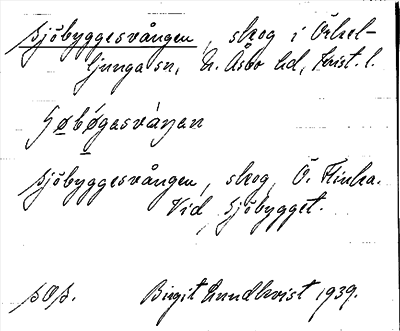 Sjöbyggesvången, skog i Örkel-
ljunga sn, N. Åsbo hd, Krist. l.
Sjöbyggesvången, skog, Ö. Flinka.
Vid Sjöbygget.
Birgit Lundkvist 1939.